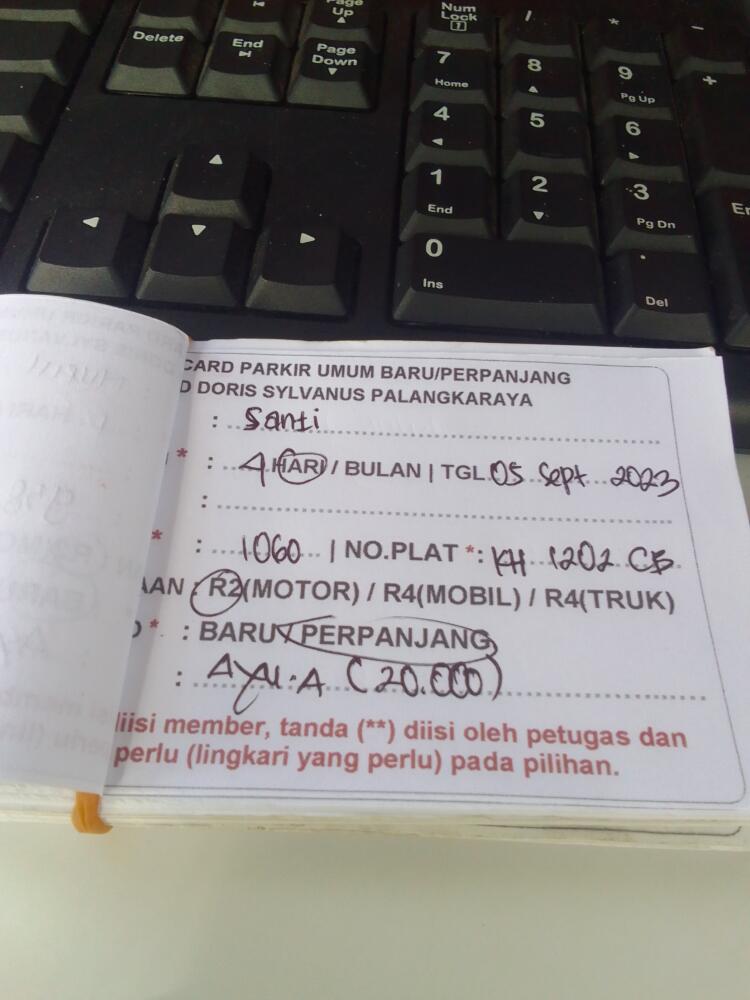 Page Up
Num Lock
/
*
-
Delete
End
Page Down
7 Home
8
9 Pg Up
+
4
5
6
1 End
2
3 Pg Dn
0 Ins
. Del
CARD PARKIR UMUM BARU/PERPANJANG
D DORIS SYLVANUS PALANGKARAYA
: Santi
* : 4 HARI / BULAN | TGL 05 Sept 2023
:
* : 1060 | NO.PLAT *: KH 1202 CB
AAN : R2(MOTOR) / R4(MOBIL) / R4(TRUK)
* : BARU / PERPANJANG
: (20.000)
diisi member, tanda (**) diisi oleh petugas dan
perlu (lingkari yang perlu) pada pilihan.